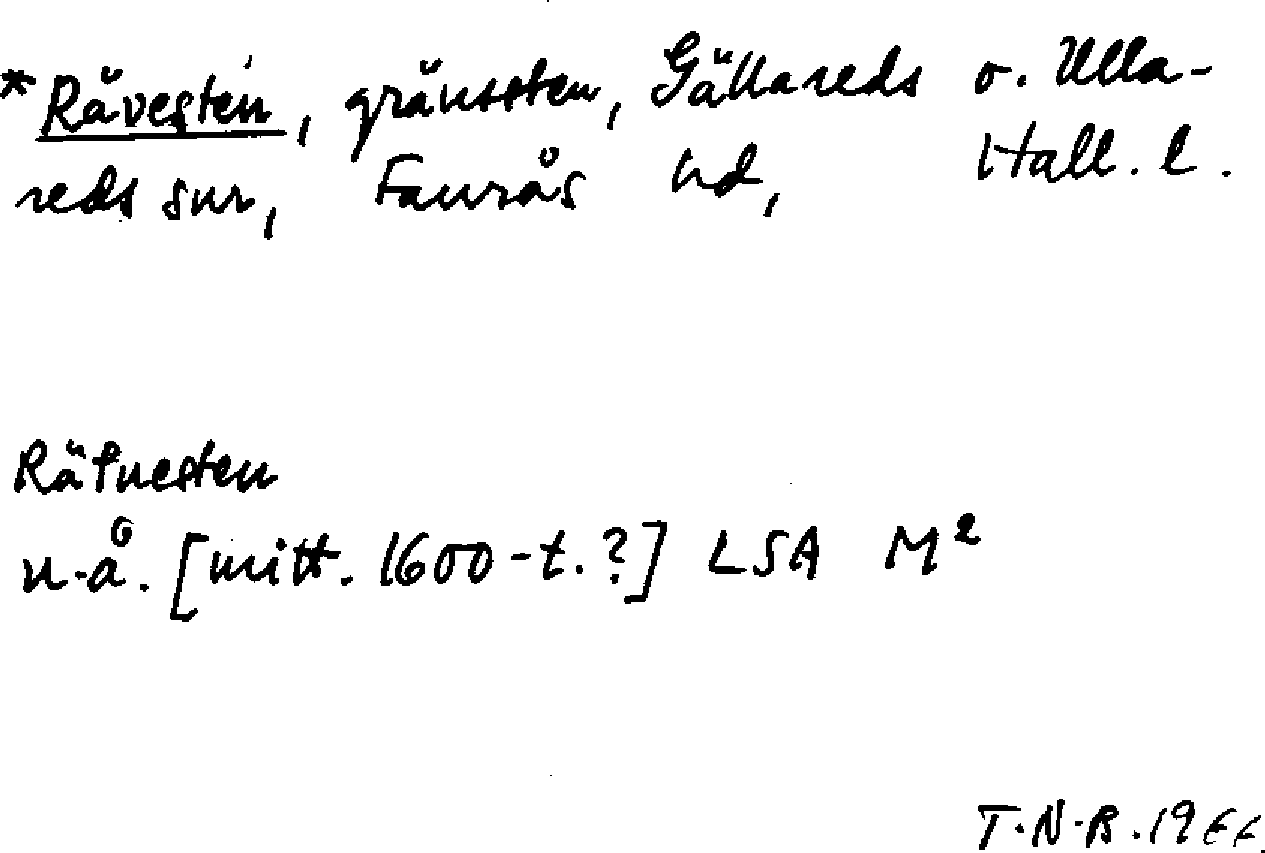 *Rävesten, gränssten, Gällareds o. Ulla-
reds snr, Faurås hd, Hall. l.
Räfuesten
u.å. [mitt. 1600-t.?] LSA M²
T.N.B. 1966.